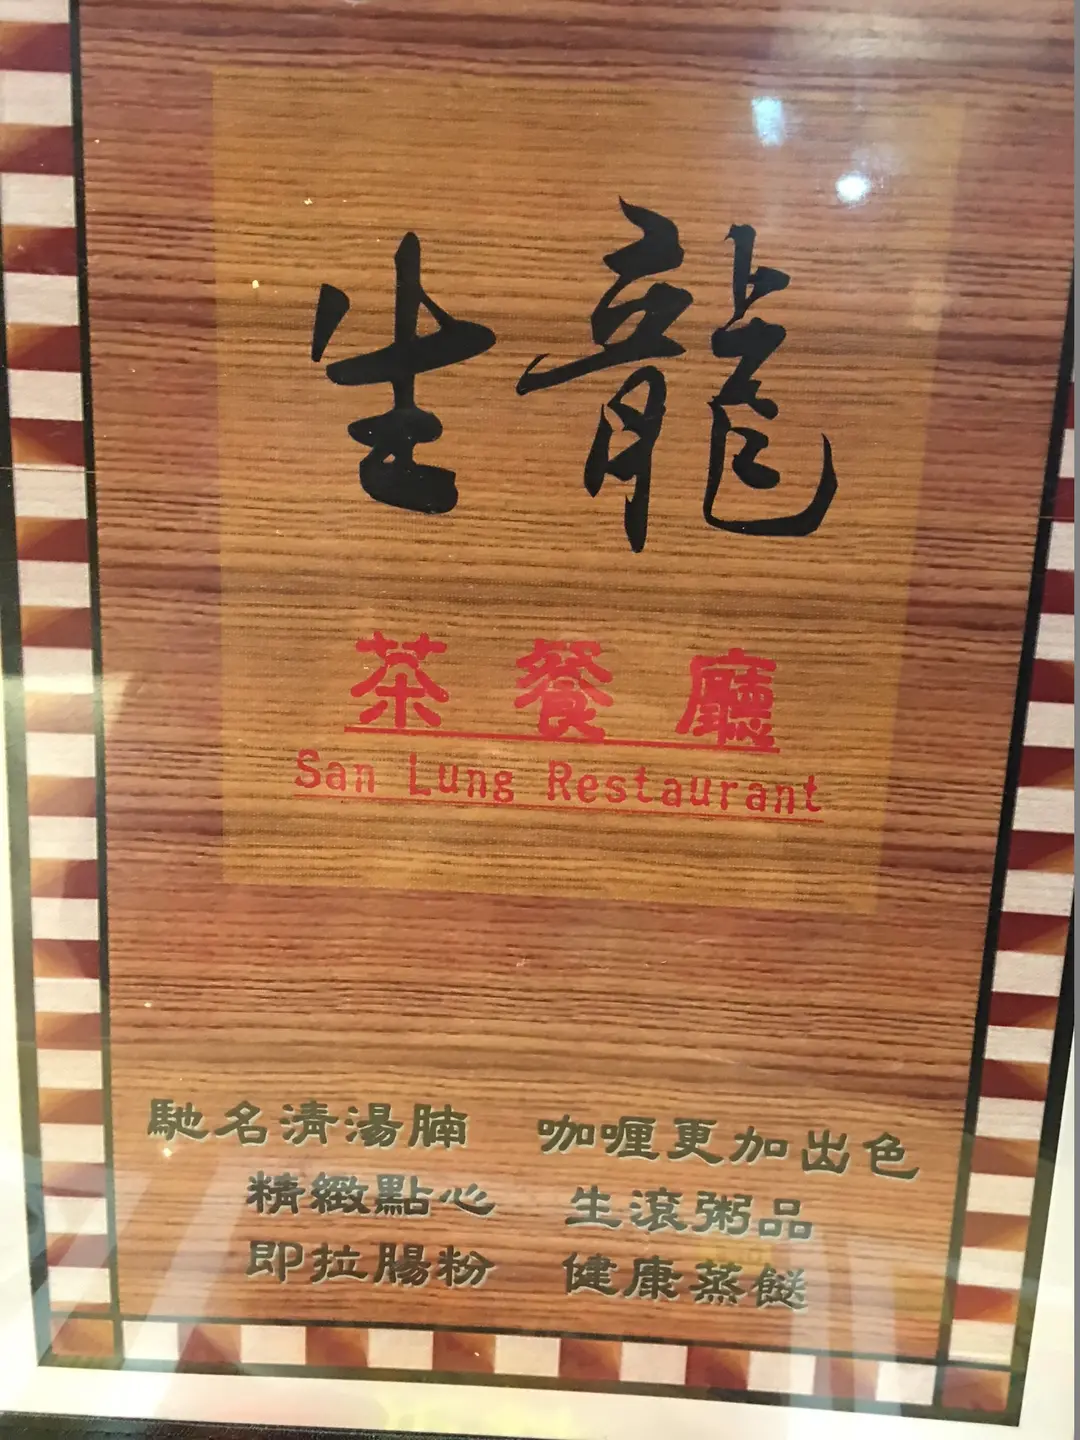 生龍
茶餐廳
San Lung Restaurant
馳名清湯腩 咖喱更加出色
精緻點心 生滾粥品
即拉腸粉 健康蒸餸